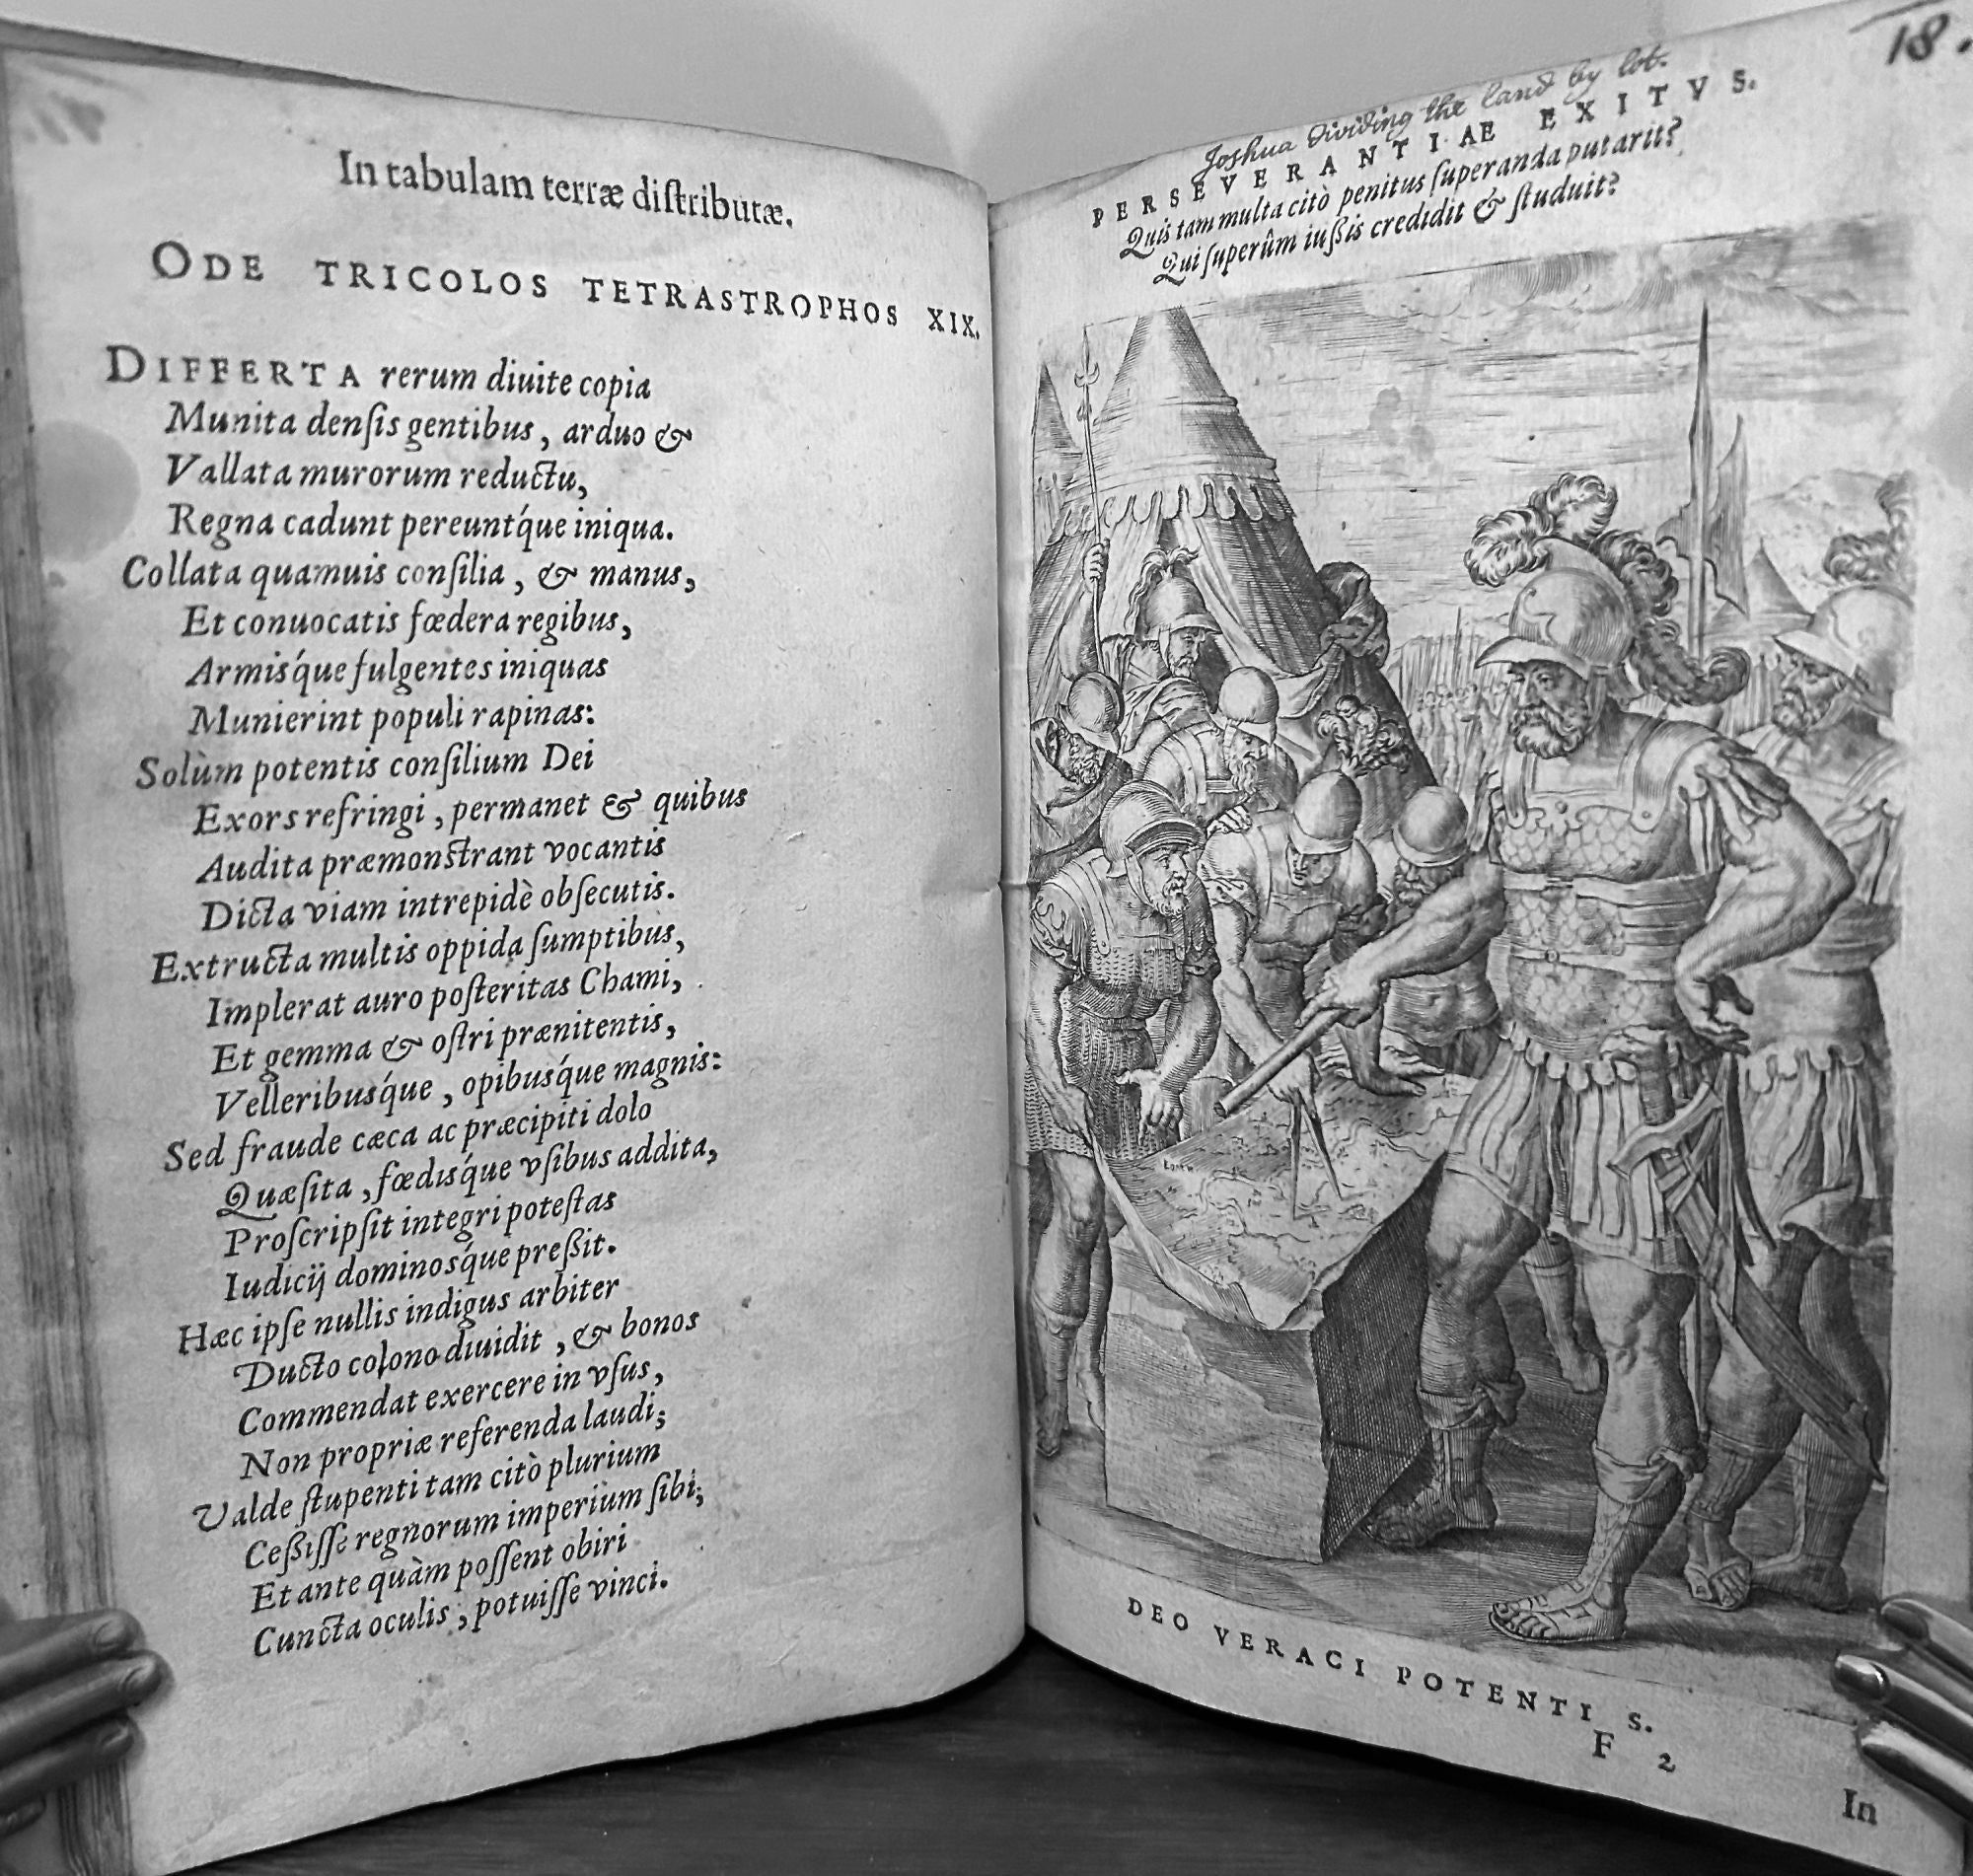 In tabulam terræ diſtributæ.
ODE TRICOLOS TETRASTROPHOS XIX.
DIFFERTA rerum diuite copia
Munita denſis gentibus, arduo &
Vallata murorum reductu,
Regna cadunt pereuntq́ue iniqua.
Collata quamuis conſilia, & manus,
Et conuocatis fœdera regibus,
Armisq́ue fulgentes iniquas
Munierint populi rapinas:
Solùm potentis conſilium Dei
Exors refringi, permanet & quibus
Audita præmonſtrant vocantis
Dicta viam intrepidè obſecutis.
Extructa multis oppida ſumptibus,
Implerat auro poſteritas Chami,
Et gemma & oſtri prænitentis,
Velleribusq́ue, opibusq́ue magnis:
Sed fraude cæca ac præcipiti dolo
Quæſita, fœdisq́ue vſibus addita,
Proſcripſit integri poteſtas
Iudicij dominosq́ue preßit.
Hæc ipſe nullis indigus arbiter
Ducto colono diuidit, & bonos
Commendat exercere in vſus,
Non propriæ referenda laudi;
Valde ſtupenti tam citò plurium
Ceßiſſe regnorum imperium ſibi;
Et ante quàm poſſent obiri
Cuncta oculis, potuiſſe vinci.
18.
Joshua dividing the land by lot.
PERSEVERANTIAE EXITVS.
Quis tam multa citò penitus ſuperanda putarit?
Qui ſuperûm iußis credidit & ſtuduit?
DEO VERACI POTENTI S.
F 2
In